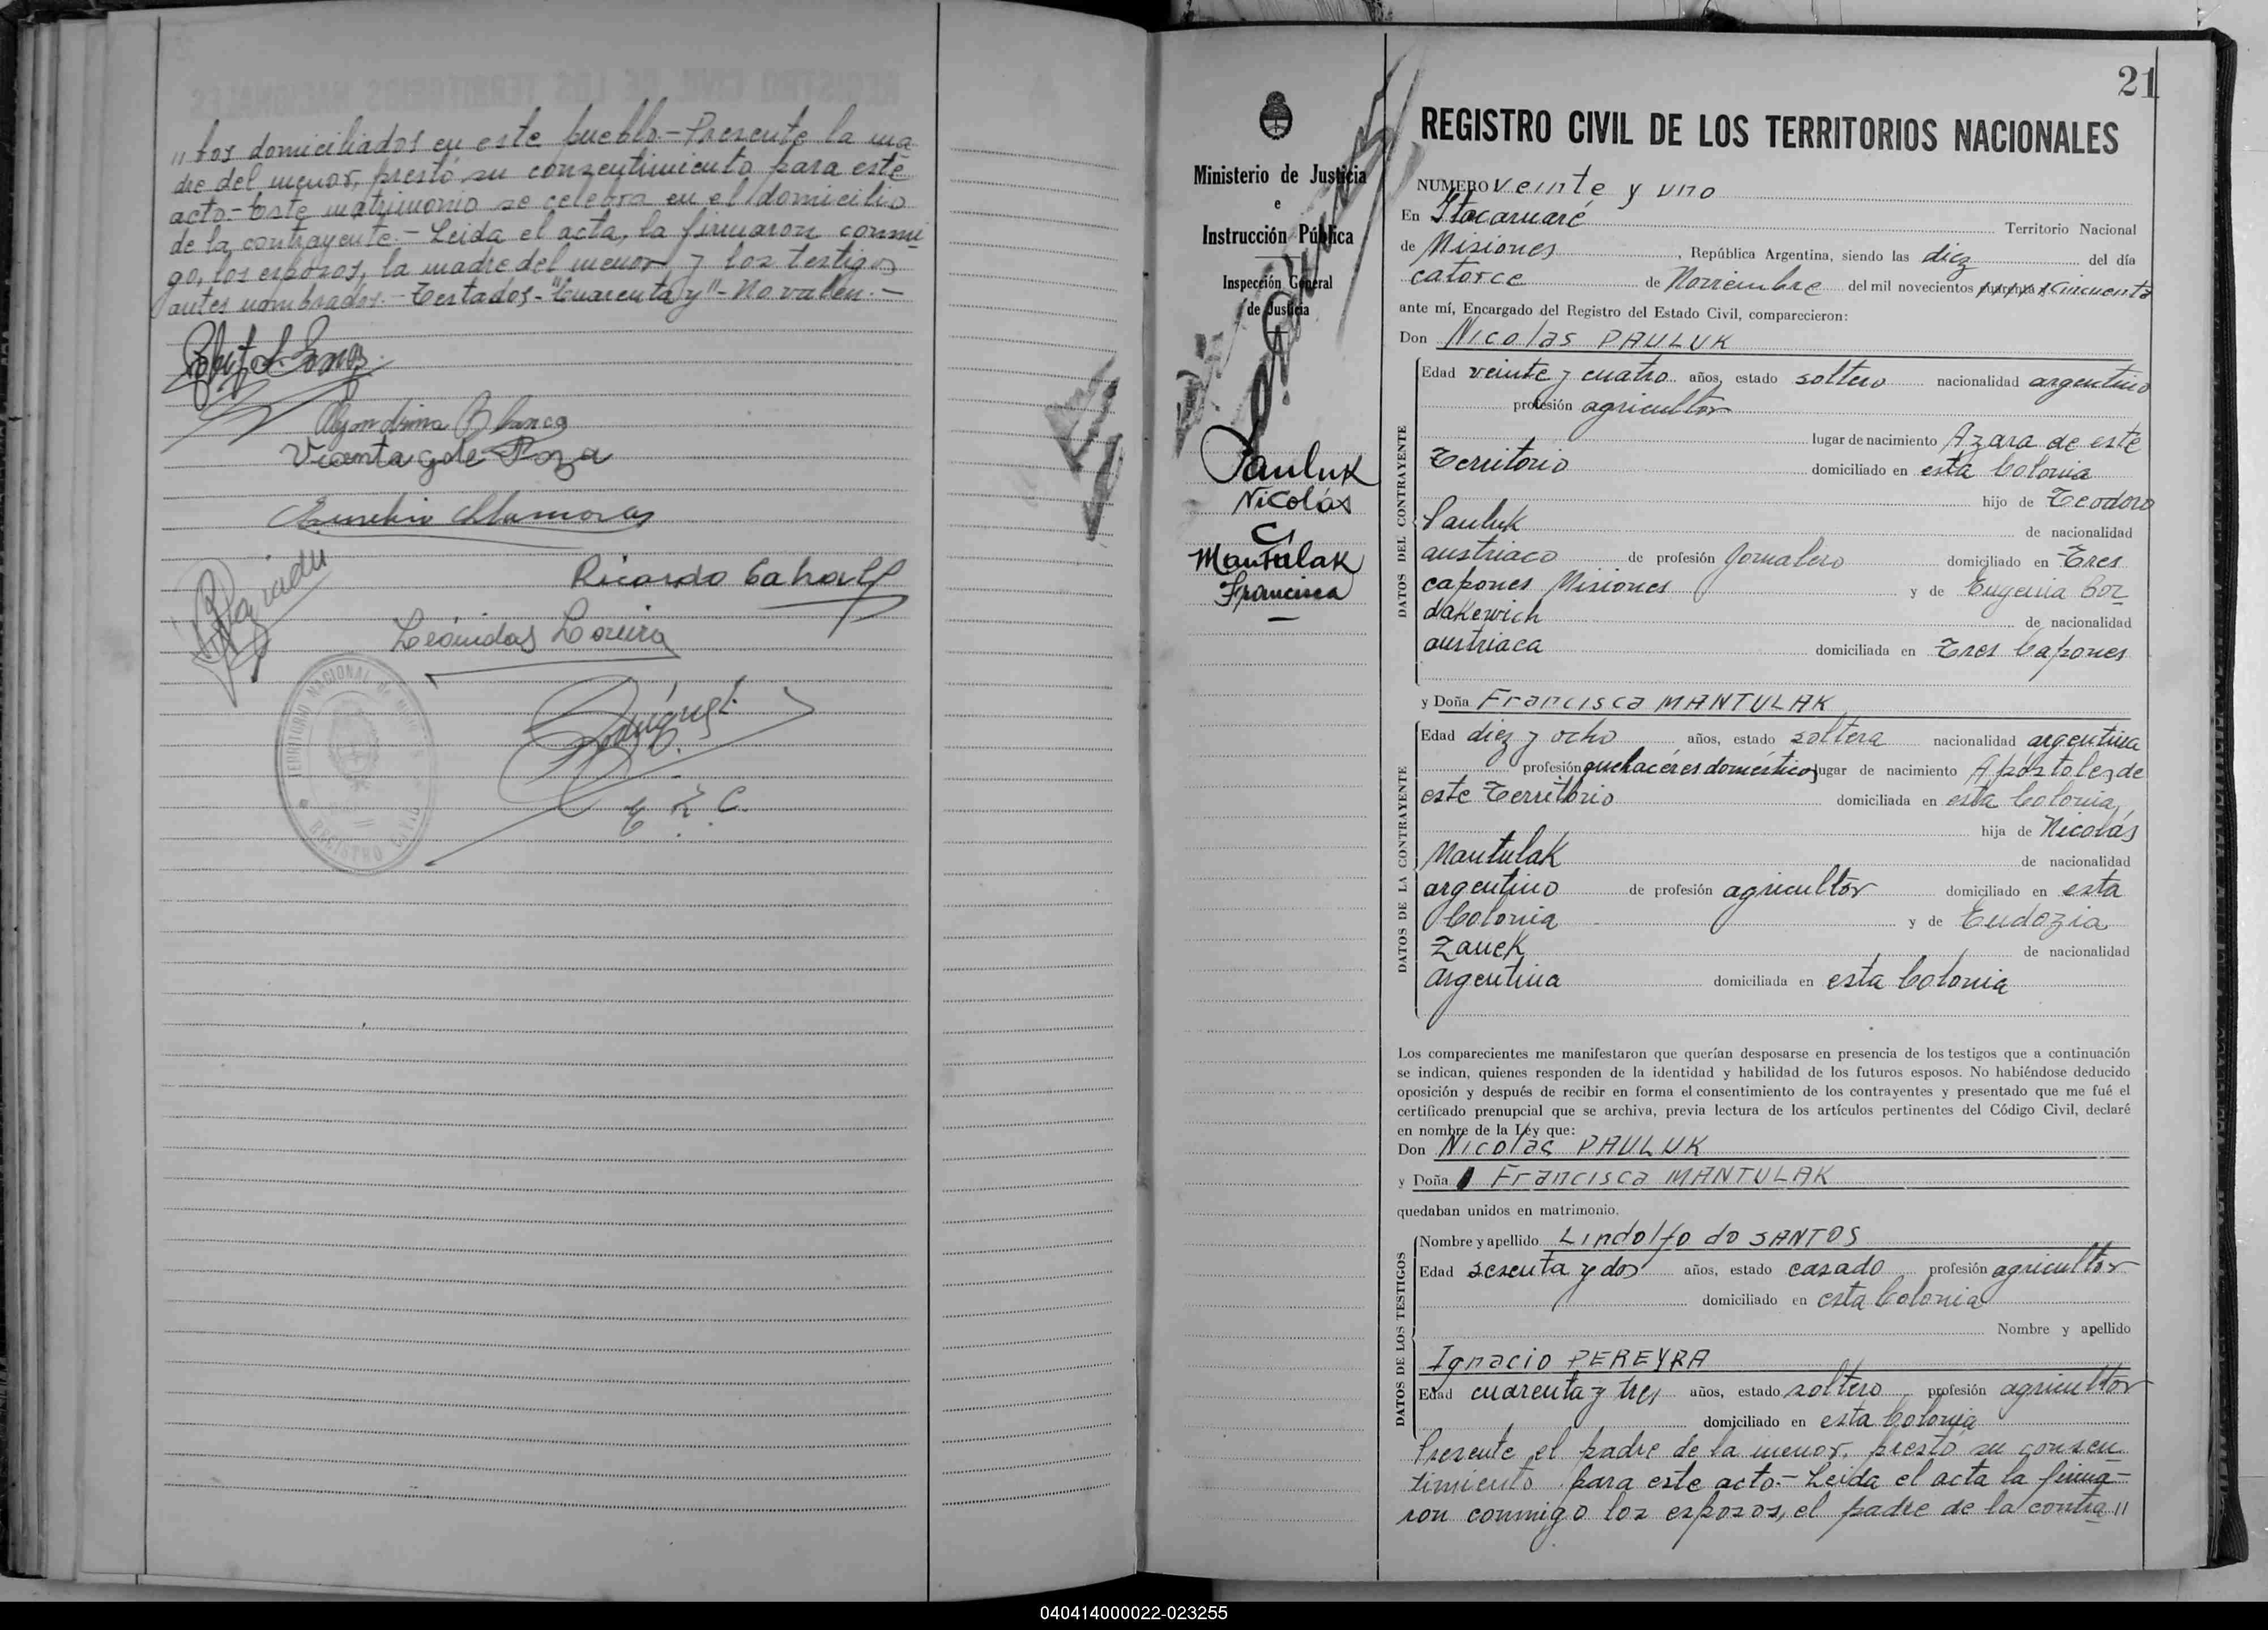 "tos domiciliados en este pueblo.- Presente la ma-
dre del menor, prestó su conzentimiento para este
acto.- Este matrimonio se celebra en el domicilio
de la contrayente.- Leida el acta, la firmaron conmi-
go, los esposos, la madre del menor y los testigos
antes nombrados.- Testados-"Cuarenta y"- No valen.-
Blanco
Vicenta g de Poza
Ricardo
Leónidas
TERRITORIO NACIONAL DE
REGISTRO CIVIL
E. R. C.
21
Ministerio de Justicia
e
Instrucción Pública
Inspección General
de Justicia
Pauluk
Nicolás
C/
Mantulak
Francisca
REGISTRO CIVIL DE LOS TERRITORIOS NACIONALES
NUMERO veinte y uno
En Itacaruaré Territorio Nacional
de Misiones, República Argentina, siendo las diez del día
catorce de Noviembre del mil novecientos cuarenta y Cincuenta
ante mí, Encargado del Registro del Estado Civil, comparecieron:
Don Nicolas PAULUK
DATOS DEL CONTRAYENTE
Edad veinte y cuatro años, estado soltero nacionalidad argentino
profesión agricultor
lugar de nacimiento Azara de este
Territorio domiciliado en esta Colonia
hijo de Teodoro
Pauluk de nacionalidad
austriaco de profesión Jornalero domiciliado en Tres
capones Misiones y de Eugenia Bor-
dakewich de nacionalidad
austriaca domiciliada en Tres Capones
y Doña Francisca MANTULAK
DATOS DE LA CONTRAYENTE
Edad diez y ocho años, estado soltera nacionalidad argentina
profesión quehaceres domesticos lugar de nacimiento Apóstoles de
este Territorio domiciliada en esta Colonia,
hija de Nicolás
Mantulak de nacionalidad
argentino de profesión agricultor domiciliado en esta
Colonia y de Eudozia
Zauek de nacionalidad
argentina domiciliada en esta Colonia
Los comparecientes me manifestaron que querían desposarse en presencia de los testigos que a continuación
se indican, quienes responden de la identidad y habilidad de los futuros esposos. No habiéndose deducido
oposición y después de recibir en forma el consentimiento de los contrayentes y presentado que me fué el
certificado prenupcial que se archiva, previa lectura de los artículos pertinentes del Código Civil, declaré
en nombre de la Ley que:
Don Nicolas PAULUK
y Doña Francisca MANTULAK
quedaban unidos en matrimonio.
DATOS DE LOS TESTIGOS
Nombre y apellido Lindolfo do SANTOS
Edad sesenta y dos años, estado casado profesión agricultor
domiciliado en esta Colonia
Nombre y apellido
Ignacio PEREYRA
Edad cuarenta y tres años, estado soltero profesión agricultor
domiciliado en esta Colonia
Presente el padre de la menor, prestó su consen-
timiento para este acto- Leida el acta la firma-
ron conmigo los esposos, el padre de la contra"
040414000022-023255